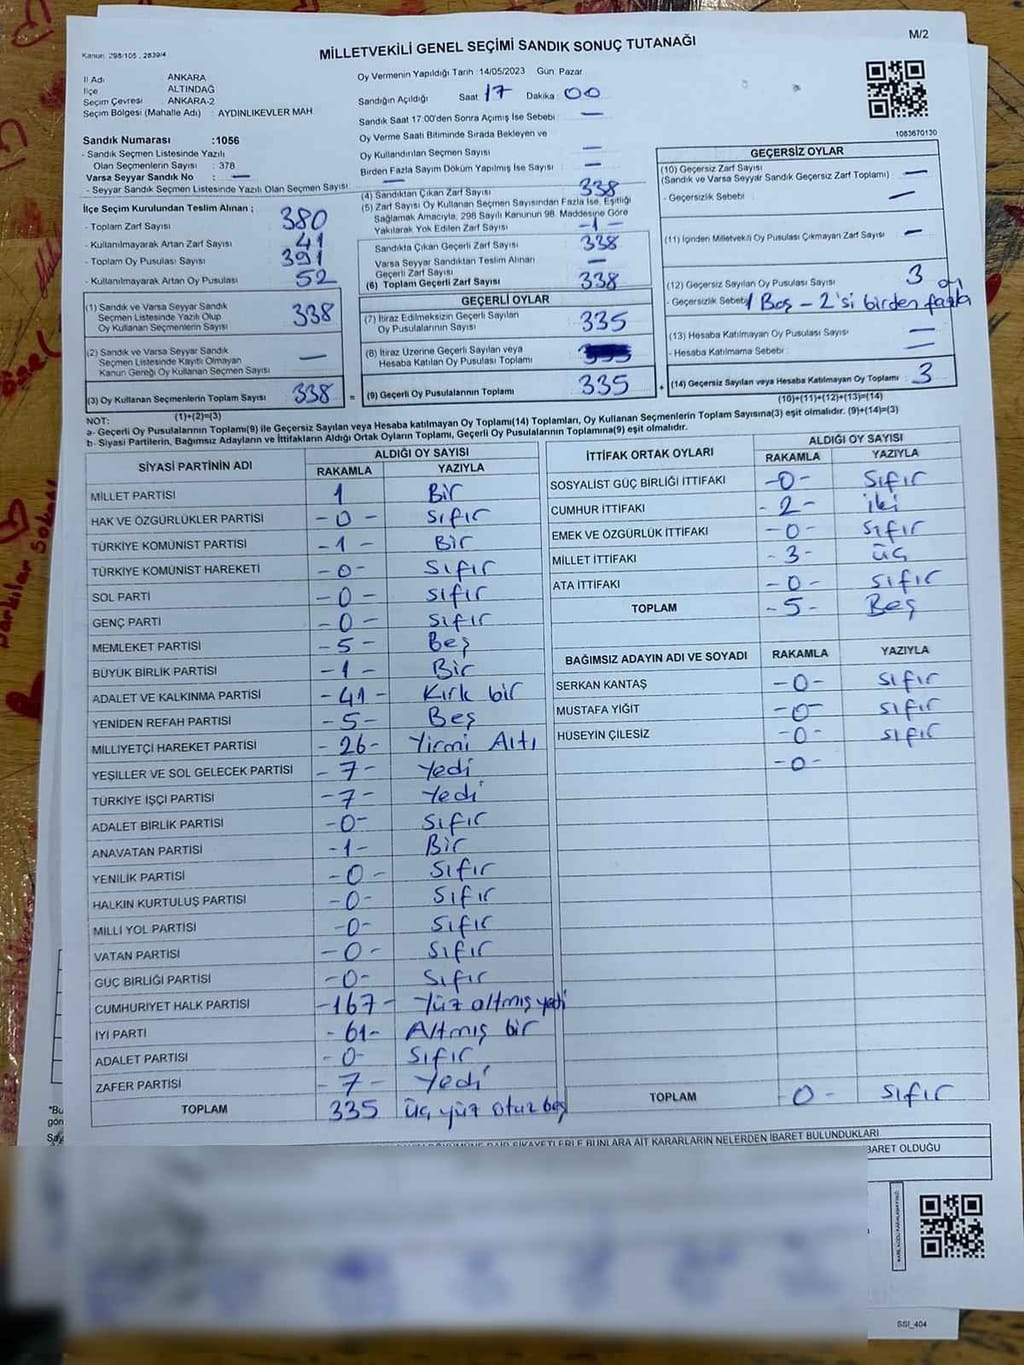 M/2
Kanun: 298/105 , 2839/4
MİLLETVEKİLİ GENEL SEÇİMİ SANDIK SONUÇ TUTANAĞI
İl Adı : ANKARA
İlçe : ALTINDAĞ
Seçim Çevresi : ANKARA-2
Seçim Bölgesi (Mahalle Adı) : AYDINLIKEVLER MAH
Oy Vermenin Yapıldığı Tarih :14/05/2023 Gün: Pazar
Sandığın Açıldığı Saat 17 Dakika 00
Sandık Saat 17:00'den Sonra Açımış İse Sebebi —
Oy Verme Saati Bitiminde Sırada Bekleyen ve
Oy Kullandırılan Seçmen Sayısı —
Birden Fazla Sayım Döküm Yapılmış İse Sayısı —
1083670130
Sandık Numarası :1056
- Sandık Seçmen Listesinde Yazılı
Olan Seçmenlerin Sayısı : 378
Varsa Seyyar Sandık No : —
- Seyyar Sandık Seçmen Listesinde Yazılı Olan Seçmen Sayısı: —
İlçe Seçim Kurulundan Teslim Alınan ;
- Toplam Zarf Sayısı 380
- Kullanılmayarak Artan Zarf Sayısı 41
- Toplam Oy Pusulası Sayısı 391
- Kullanılmayarak Artan Oy Pusulası 52
(1) Sandık ve Varsa Seyyar Sandık
Seçmen Listesinde Yazılı Olup
Oy Kullanan Seçmenlerin Sayısı 338
(2) Sandık ve Varsa Seyyar Sandık
Seçmen Listesinde Kayıtlı Olmayan
Kanun Gereği Oy Kullanan Seçmen Sayısı —
(3) Oy Kullanan Seçmenlerin Toplam Sayısı 338 =
(1)+(2)=(3)
(4) Sandıktan Çıkan Zarf Sayısı 338
(5) Zarf Sayısı Oy Kullanan Seçmen Sayısından Fazla İse, Eşitliği
Sağlamak Amacıyla, 298 Sayılı Kanunun 98. Maddesine Göre
Yakılarak Yok Edilen Zarf Sayısı
Sandıkta Çıkan Geçerli Zarf Sayısı 338
Varsa Seyyar Sandıktan Teslim Alınan
Geçerli Zarf Sayısı —
(6) Toplam Geçerli Zarf Sayısı 338
GEÇERLİ OYLAR
(7) İtiraz Edilmeksizin Geçerli Sayılan
Oy Pusulalarının Sayısı 335
(8) İtiraz Üzerine Geçerli Sayılan veya
Hesaba Katılan Oy Pusulası Toplamı
(9) Geçerli Oy Pusulalarının Toplamı 335 +
GEÇERSİZ OYLAR
(10) Geçersiz Zarf Sayısı
(Sandık ve Varsa Seyyar Sandık Geçersiz Zarf Toplamı) —
- Geçersizlik Sebebi —
(11) İçinden Milletvekili Oy Pusulası Çıkmayan Zarf Sayısı —
(12) Geçersiz Sayılan Oy Pusulası Sayısı 3
- Geçersizlik Sebebi 1 Boş - 2'si birden fazla oy
(13) Hesaba Katılmayan Oy Pusulası Sayısı —
- Hesaba Katılmama Sebebi —
(14) Geçersiz Sayılan veya Hesaba Katılmayan Oy Toplamı 3
(10)+(11)+(12)+(13)=(14)
NOT:
a- Geçerli Oy Pusulaları(9) ile Geçersiz Sayılan veya Hesaba katılmayan Oy Toplamı(14) Toplamları, Oy Kullanan Seçmenlerin Toplam Sayısına(3) eşit olmalıdır. (9)+(14)=(3)
b- Siyasi Partilerin, Bağımsız Adayların ve İttifakların Aldığı Ortak Oyların Toplamı, Geçerli Oy Pusulalarının Toplamına(9) eşit olmalıdır.
SİYASİ PARTİNİN ADI ALDIĞI OY SAYISI
RAKAMLA YAZIYLA
MİLLET PARTİSİ 1 Bir
HAK VE ÖZGÜRLÜKLER PARTİSİ -0- Sıfır
TÜRKİYE KOMÜNİST PARTİSİ -1- Bir
TÜRKİYE KOMÜNİST HAREKETİ -0- Sıfır
SOL PARTİ -0- Sıfır
GENÇ PARTİ -0- Sıfır
MEMLEKET PARTİSİ -5- Beş
BÜYÜK BİRLİK PARTİSİ -1- Bir
ADALET VE KALKINMA PARTİSİ -41- Kırk bir
YENİDEN REFAH PARTİSİ -5- Beş
MİLLİYETÇİ HAREKET PARTİSİ -26- Yirmi Altı
YEŞİLLER VE SOL GELECEK PARTİSİ -7- Yedi
TÜRKİYE İŞÇİ PARTİSİ -7- Yedi
ADALET BİRLİK PARTİSİ -0- Sıfır
ANAVATAN PARTİSİ -1- Bir
YENİLİK PARTİSİ -0- Sıfır
HALKIN KURTULUŞ PARTİSİ -0- Sıfır
MİLLİ YOL PARTİSİ -0- Sıfır
VATAN PARTİSİ -0- Sıfır
GÜÇ BİRLİĞİ PARTİSİ -0- Sıfır
CUMHURİYET HALK PARTİSİ -167- Yüz altmış yedi
İYİ PARTİ -61- Altmış bir
ADALET PARTİSİ -0- Sıfır
ZAFER PARTİSİ -7- Yedi
TOPLAM 335 üç yüz otuz beş
İTTİFAK ORTAK OYLARI ALDIĞI OY SAYISI
RAKAMLA YAZIYLA
SOSYALİST GÜÇ BİRLİĞİ İTTİFAKI -0- Sıfır
CUMHUR İTTİFAKI -2- iki
EMEK VE ÖZGÜRLÜK İTTİFAKI -0- Sıfır
MİLLET İTTİFAKI -3- üç
ATA İTTİFAKI -0- Sıfır
TOPLAM -5- Beş
BAĞIMSIZ ADAYIN ADI VE SOYADI RAKAMLA YAZIYLA
SERKAN KANTAŞ -0- Sıfır
MUSTAFA YİĞİT -0- Sıfır
HÜSEYİN ÇİLESİZ -0- Sıfır
-0-
TOPLAM -0- Sıfır
ŞİKAYETLERLE BUNLARA AİT KARARLARIN NELERDEN İBARET BULUNDUKLARI
BARET OLDUĞU
SSİ_404